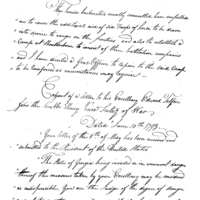 These hostilities recently committed have compelled me
to cause the additional aid of Six Troops of horse to be drawn
into service to range on the frontier and also to establish a
Camp at Shoulderbone to consist of three battalions complete
and I have directed a Gen: Officer to repair to the said Camp
to be Composed as circumstances may require —
Extract of a letter to his Excellency Edward Telfair
from the Honble Henry Knox Secretary of War —
Dated June 10th 1793
Your letter of the 8th of May has been received and
submitted to the President of the United States
The State of Georgia being invaded or in imminent danger
thereof the measures taken by your Excellency may be considered
as indispensible. You are the Judge of the degree of danger